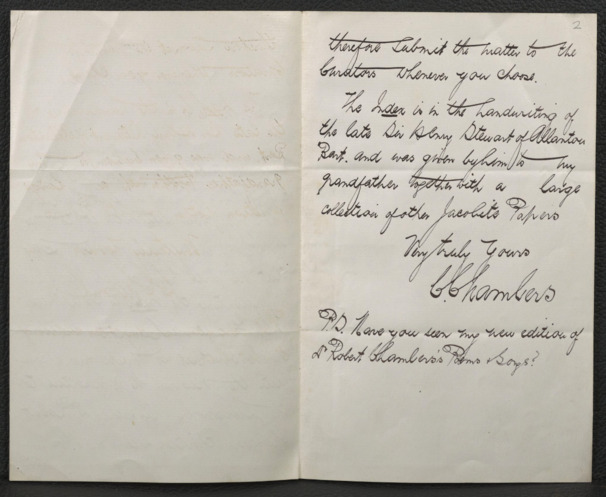 2
therefore Submit the matter to the
Curators whenever you choose.
The Index is in the handwriting of
the late Sir Henry Stewart of Allanton
Bart. and was given by him to my
grandfather together with a large
collection of other Jacobite Papers
Very truly Yours
C. Chambers
P.S. Have you seen my new edition of
Dr Robert Chambers's Poems & Songs?